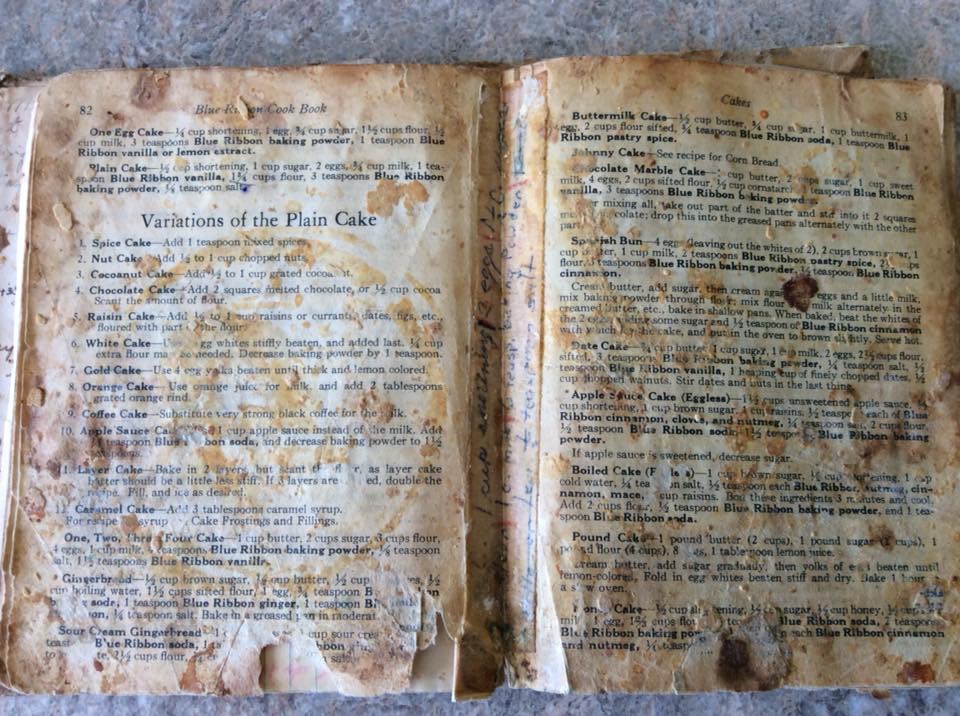 82 Blue Ribbon Cook Book
One Egg Cake—¼ cup shortening, 1 egg, ¾ cup sugar, 1½ cups flour, ½
cup milk, 3 teaspoons Blue Ribbon baking powder, 1 teaspoon Blue
Ribbon vanilla or lemon extract.
Plain Cake—½ cup shortening, 1 cup sugar, 2 eggs, ¾ cup milk, 1 tea-
spoon Blue Ribbon vanilla, 1¾ cups flour, 3 teaspoons Blue Ribbon
baking powder, ¼ teaspoon salt
Variations of the Plain Cake
1. Spice Cake—Add 1 teaspoon mixed spices
2. Nut Cake—Add ½ to 1 cup chopped nuts
3. Cocoanut Cake—Add ½ to 1 cup grated cocoanut.
4. Chocolate Cake—Add 2 squares melted chocolate, or ½ cup cocoa
Scant the amount of flour.
5. Raisin Cake—Add ½ to 1 cup raisins or currants, dates, figs, etc.,
floured with part of the flour.
6. White Cake—Use egg whites stiffly beaten, and added last. ¼ cup
extra flour may be needed. Decrease baking powder by 1 teaspoon.
7. Gold Cake—Use 4 egg yolks beaten until thick and lemon colored.
8. Orange Cake—Use orange juice for milk, and add 2 tablespoons
grated orange rind.
9. Coffee Cake—Substitute very strong black coffee for the milk.
10. Apple Sauce Cake 1 cup apple sauce instead of the milk. Add
teaspoon Blue Ribbon soda, and decrease baking powder to 1½
teaspoons.
11. Layer Cake—Bake in 2 layers, but scant the flour, as layer cake
batter should be a little less stiff. If 3 layers are ed, double the
recipe. Fill, and ice as desired.
12. Caramel Cake—Add 3 tablespoons caramel syrup.
For recipe syrup Cake Frostings and Fillings.
One, Two, Three, Four Cake—1 cup butter, 2 cups sugar, 3 cups flour,
4 eggs, 1 cup milk, 4 teaspoons Blue Ribbon baking powder, ¼ teaspoon
salt, 1½ teaspoons Blue Ribbon vanilla.
Gingerbread—½ cup brown sugar, ½ cup butter, ½ cup es, ½
cup boiling water, 1½ cups sifted flour, 1 egg, ¾ teaspoon
soda, 1 teaspoon Blue Ribbon ginger, 1 teaspoon
¼ teaspoon salt. Bake in a greased pan in moderat
Sour Cream Gingerbread cup sour crea
Blue Ribbon soda,
2½ cups flour,
1 cup shortening 2 eggs
Cakes 83
Buttermilk Cake—½ cup butter, ¾ cup sugar, 1 cup buttermilk, 1
egg, 2 cups flour sifted, ¾ teaspoon Blue Ribbon soda, 1 teaspoon Blue
Ribbon pastry spice.
Johnny Cake—See recipe for Corn Bread.
Chocolate Marble Cake— cup butter, 2 cups sugar, 1 cup sweet
milk, 4 eggs, 2 cups sifted flour, ½ cup cornstarch teaspoon Blue Ribbon
vanilla, 3 teaspoons Blue Ribbon baking powder.
After mixing all, take out part of the batter and stir into it 2 squares
melted chocolate; drop this into the greased pans alternately with the other
part
Spanish Bun—4 eggs (leaving out the whites of 2), 2 cups brown sugar, 1
cup butter, 1 cup milk, 2 teaspoons Blue Ribbon pastry spice, 2 cups
flour, 3 teaspoons Blue Ribbon baking powder, ½ teaspoon Blue Ribbon
cinnamon.
Cream butter, add sugar, then cream again eggs and a little milk,
mix baking powder through flour; mix flour milk alternately in the
creamed butter, etc., bake in shallow pans. When baked, beat the whites of
the 2 eggs adding some sugar and ½ teaspoon of Blue Ribbon cinnamon
the cake, and put in the oven to brown slightly. Serve hot.
Date Cake—¾ cup butter, 1 cup sugar, 1 cup milk, 2 eggs, 2½ cups flour
sifted, 3 teaspoons Blue Ribbon baking powder, ¼ teaspoon salt, ½
teaspoon Blue Ribbon vanilla, 1 heaping cup of finely chopped dates, ½
cup chopped walnuts. Stir dates and nuts in the last thing.
Apple Sauce Cake (Eggless)—1½ cups unsweetened apple sauce, ½
cup shortening, 1 cup brown sugar, 1 cup raisins, ½ teaspoon each of Blue
Ribbon cinnamon, cloves, and nutmeg, ¼ teaspoon salt, 2 cups flour,
½ teaspoon Blue Ribbon soda 1½ teaspoons Blue Ribbon baking
powder.
If apple sauce is sweetened, decrease sugar.
Boiled Cake —1 cup brown sugar, ½ cup shortening, 1 cup
cold water, ¼ tea on salt, ½ teaspoon each Blue Ribbon nutmeg, cin-
namon, mace, cup raisins. Boil these ingredients 3 minutes and cool
Add 2 cups flour, ½ teaspoon Blue Ribbon baking powder, and 1 tea-
spoon Blue Ribbon soda.
Pound Cake—1 pound butter (2 cups), 1 pound sugar (2 cups), 1
pound flour (4 cups), 8 eggs, 1 tablespoon lemon juice.
Cream butter, add sugar gradually, then yolks of eggs beaten until
lemon-colored. Fold in egg whites beaten stiff and dry. Bake 1 hour
a slow oven.
Honey Cake—½ cup shortening, ½ cup sugar, ½ cup honey, ½ cup
milk, 1 egg, 1½ cups flour Blue Ribbon soda, 2 teaspoons
Blue Ribbon baking pow each Blue Ribbon cinnamon
and nutmeg, ¼ teaspoon